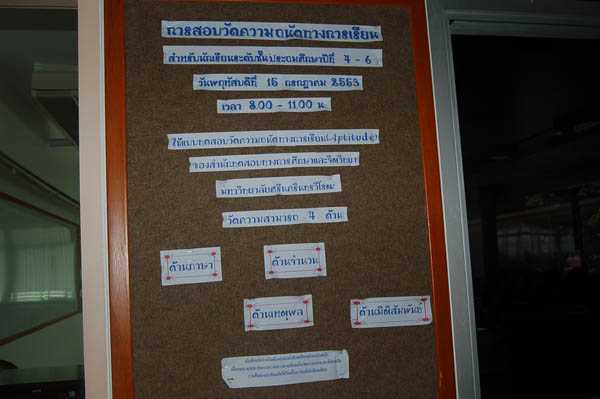 การสอบวัดความถนัดทางการเรียน
สำหรับนักเรียนระดับชั้นประถมศึกษาปีที่ 4 - 6
วันพฤหัสบดีที่ 15 กรกฎาคม 2553
เวลา 8.00 - 11.00 น.
ใช้แบบทดสอบวัดความถนัดทางการเรียน(Aptitude)
ของสำนักทดสอบทางการศึกษาและจิตวิทยา
มหาวิทยาลัยศรีนครินทรวิโรฒ
วัดความสามารถ 4 ด้าน
ด้านภาษา
ด้านจำนวน
ด้านเหตุผล
ด้านมิติสัมพันธ์